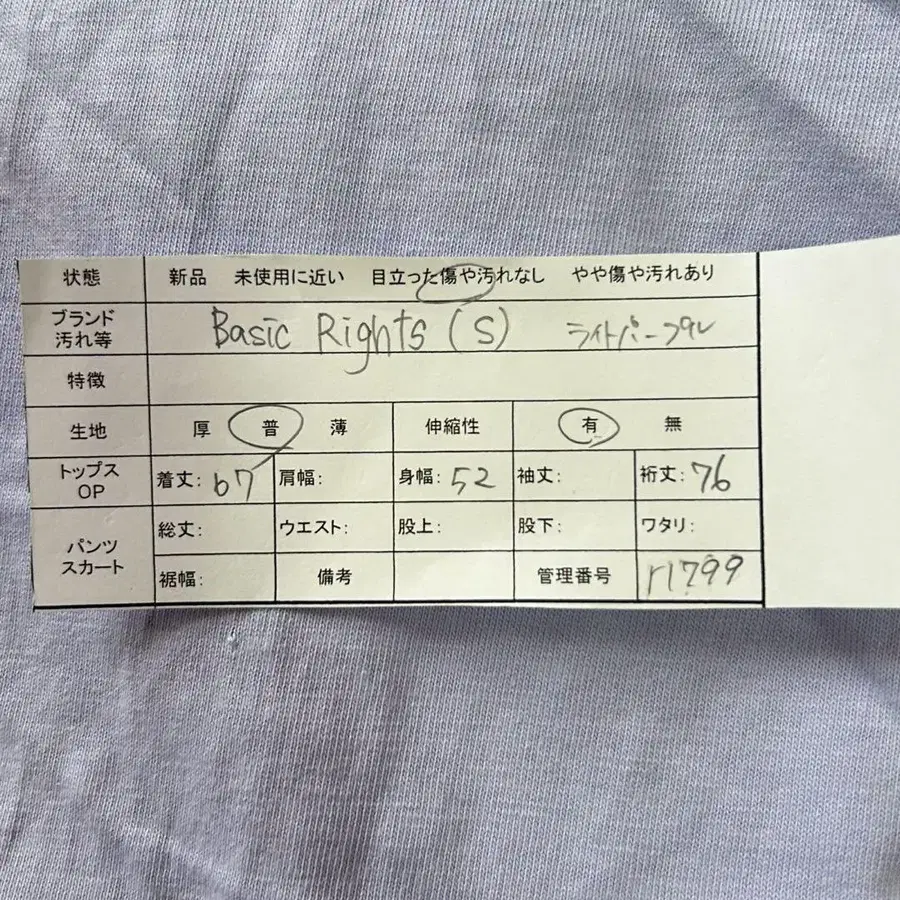 状態 新品 未使用に近い 目立った傷や汚れなし やや傷や汚れあり
ブランド 汚れ等 Basic Rights (S) ライトパープル
特徴
生地 厚 普 薄 伸縮性 有 無
トップス OP 着丈: 67 肩幅: 身幅: 52 袖丈: 裄丈: 76
パンツ スカート 総丈: ウエスト: 股上: 股下: ワタリ:
裾幅: 備考 管理番号 r1799